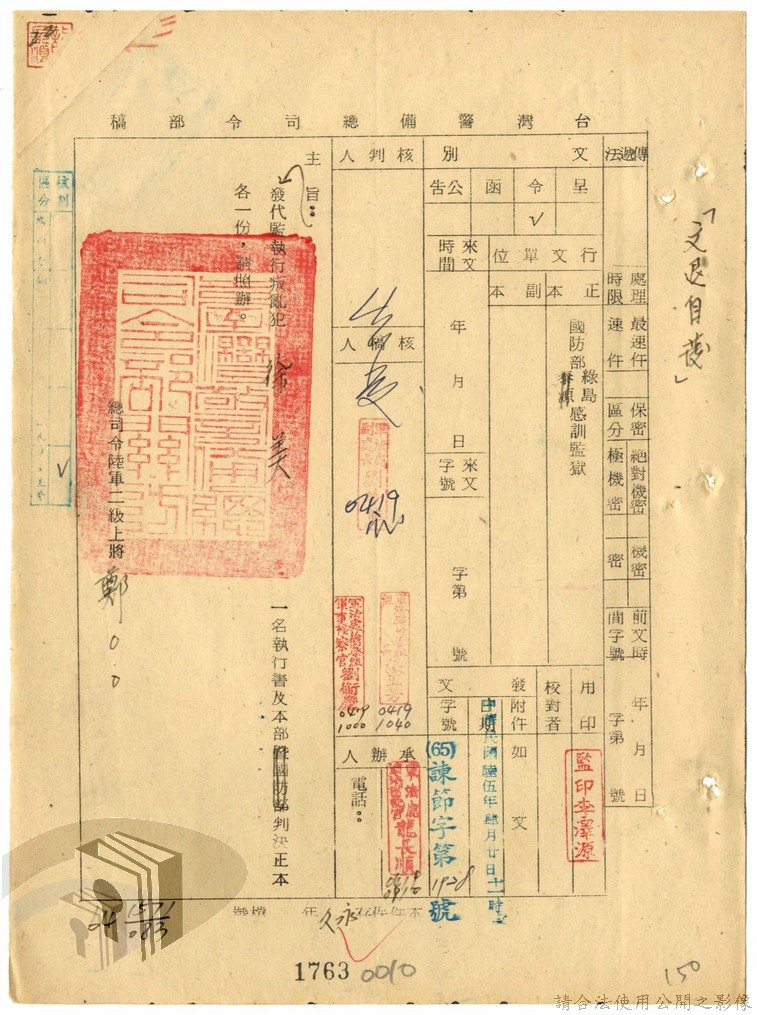 台灣警備總司令部稿
傳遞法
處理時限
最速件
速件
保密區分
絕對機密
極機密
機密
密
前文時間字號
年 月 日
字第 號
文別
呈
令
函
公告
ˇ
行文單位
正本
副本
國防部綠島感訓監獄
來文時間
年 月 日
來文字號
字第 號
用印
監印李澤源
校對者
發文
附件
如文
日期
中華民國陸伍年肆月廿日十一時
字號
(65)諫節字第1928號
核判人
核稿人
0419
0419
1040
軍事檢察官劉衡慶
0419
1000
承辦人
電話:
主旨:
發代監執行叛亂犯 徐美 一名執行書及本部暨國防部判決正本
各一份,請照辦。
總司令陸軍二級上將鄭○○
核判區分
ˇ
「文退自黃」
本件保存 永久 年
檔號
04
1571
083
1763
0010
150
請合法使用公開之影像